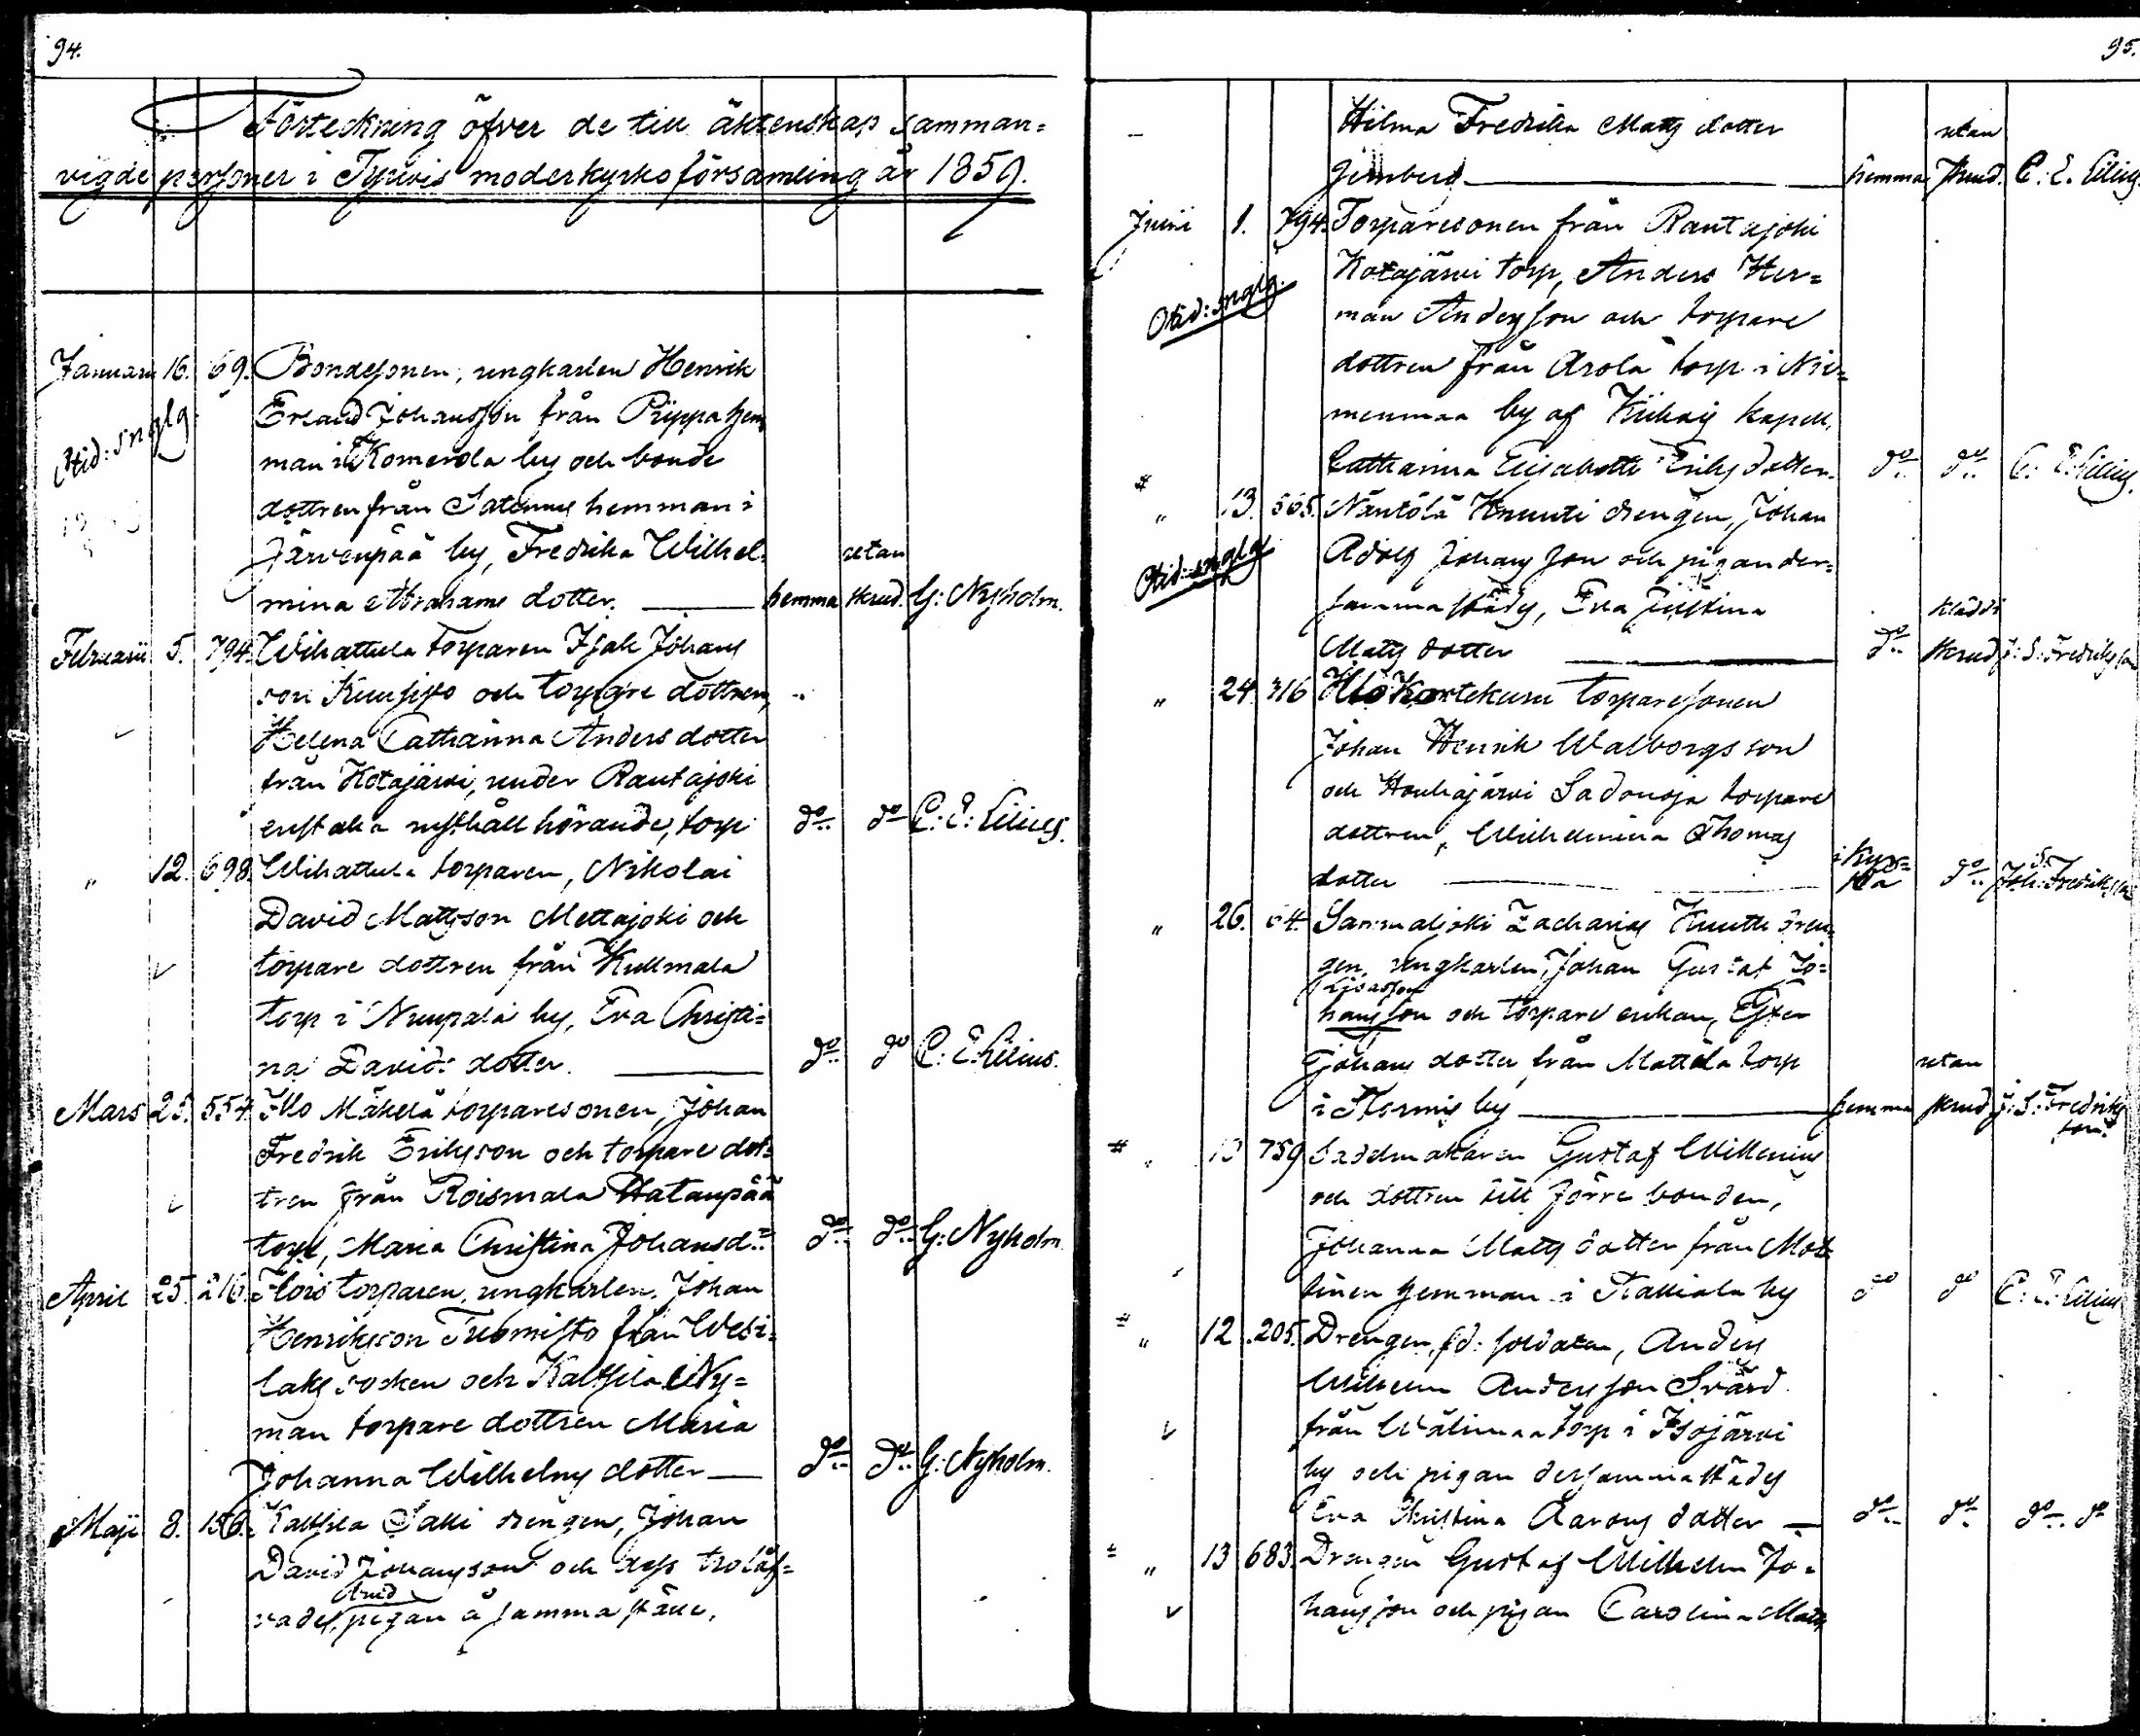 94.
Förteckning öfver de till äktenskap samman=
vigde personer i Tyrvis moderkyrkoförsamling år 1859.
Januarii 16. 69. Bondesonen, ungkarlen Henrik
Otid: snglg.
Erland Johansson från Pippa hem=
man i Komerola by och bonde
dottren från Satamus hemman i
Järvenpää by, Fredrika Wilhel= utan
mina Abrahams dotter. hemma skrud. G: Nyholm.
Februarii 5. 794. Wihattula torparen Isak Johans
son Kuusisto och torpare dottren,
Helena Catharina Anders dotter
från Kotajärvi, under Rautajoki
rusthåll hörande, torp do do C: E: Lilius.
" 12. 698. Wihattula torparen, Nikolai
David Mattsson Mettajoki och
torpare dottren från Kullmala
torp i Nuupala by, Eva Christi=
na Davids dotter. do do C: E: Lilius.
Mars 25. 554. Illo Mäkelä torparesonen, Johan
Fredrik Eriksson och torpare dot=
tren från Roismala Hatanpää
torp, Maria Christina Johansd:r do do G: Nyholm.
April 25. 216. torparen, ungkarlen, Johan
Henriksson Tuomisto från Wesi=
laks socken och Kaltsila Ny=
man torpare dottren Maria
Johanna Wilhelms dotter do do G: Nyholm.
Maji 8. 156. Kaltsila Salli drengen, Johan
David Johansson och dess trolåf=
vade, pigan å samma ställe,
95.
Hilma Fredrika Matts dotter utan
hemma skrud. C. E. Lilius.
Junii 1. 794. Torparesonen från Rautajoki
Kotajärvi torp, Anders Her=
Otid: snglg.
man Andersson och torpare
dottren från Arola torp i Nie=
menmaa by af Kiikois kapell,
Catharina Elisabeth Eriks dotter. do do C. E. Lilius.
" 13. 565. Näntölä Knuuti drengen, Johan
Otid: snglg.
Adolf Johansson och pigan der=
samma städs, Eva Justina klädd i
Matts dotter do skrud J: S: Fredriksson
" 24. 316 Illo Kortekuru torparesonen
Johan Henrik Walborgs son
och Houhajärvi Sadonoja torpare
dottren, Wilhelmina Thomas
dotter i kyr=
ka do Joh: S: Fredriksson
" 26. 64. Sammaljoki Zacharias Knuutti dren=
gen, ungkarlen, Johan Gustaf Jo=
hansson och torpare enkan, Ester
Johans dotter från Mattila torp utan
i Kormis by hemma skrud J: S: Fredriks
son.
" 759 Sadelmakaren Gustaf Willenius
och dottren till förre bonden,
Johanna Matts dotter från
hemman i Kalliala by do do C: E: Lilius
" 12. 205. Drengen, f.d. soldaten, Anders
Wilhelm Andersson Svärd
från Wälimaa torp i Isojärvi
by och pigan dersamma städs
Eva Kristina Aarons dotter do do do do
" 13 683. Drengen Gustaf Wilhelm Jo=
hansson och pigan Carolina Matts